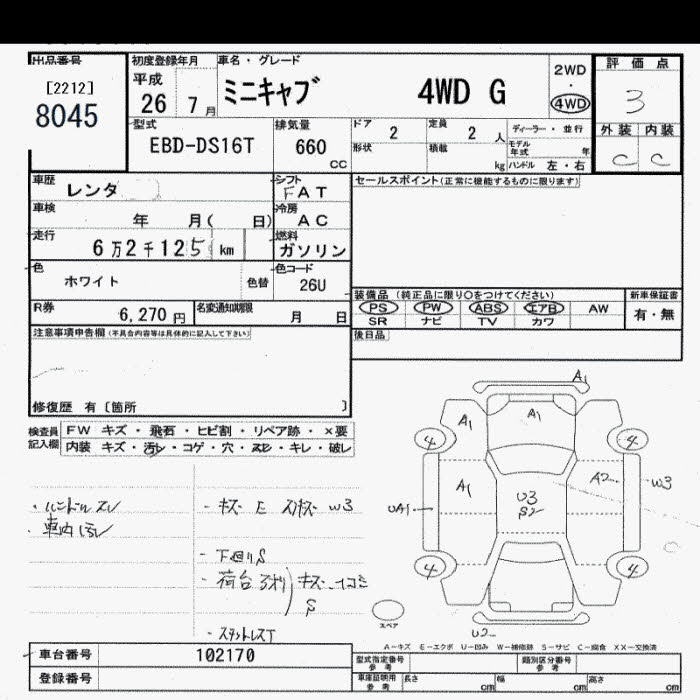 出品番号
[2212]
8045
初度登録年月
平成
26 7 月
車名・グレード
ミニキャブ 4WD G
2WD
・
4WD
評価点
3
外装 内装
C C
型式
EBD-DS16T
排気量
660
CC
ドア 2
定員 2 人
ディーラー・並行
形状
積載
kg
モデル年式 年
ハンドル 左・右
車歴 レンタ
シフト
FAT
車検
年 月( 日)
冷房
AC
走行
6万2千125 km
燃料
ガソリン
色
ホワイト
色替
色コード
26U
R券
6,270 円
名変通知期限
月 日
セールスポイント(正常に機能するものに限ります)
装備品(純正品に限り○をつけてください)
新車保証書
PS PW ABS エアB AW
有・無
SR ナビ TV カワ
後日品
注意事項申告欄(不具合内容等は具体的に記入して下さい)
修復歴 有〔箇所 〕
検査員記入欄
FW キズ・飛石・ヒビ割・リペア跡・×要
内装 キズ・汚レ・コゲ・穴・スレ・キレ・破レ
・ハンドルスレ
・車内汚レ
・下廻りS
A1
A1
A1
4
4
A1
A2
W3
UA1
U3
S2
4
4
U2
スペア
A－キズ E－エクボ U－凹み W－補修跡 S－サビ C－腐食 XX－交換済
車台番号 102170
登録番号
型式指定番号
参考
類別区分番号
参考
車庫証明用
参考
長さ cm
幅 cm
高さ cm